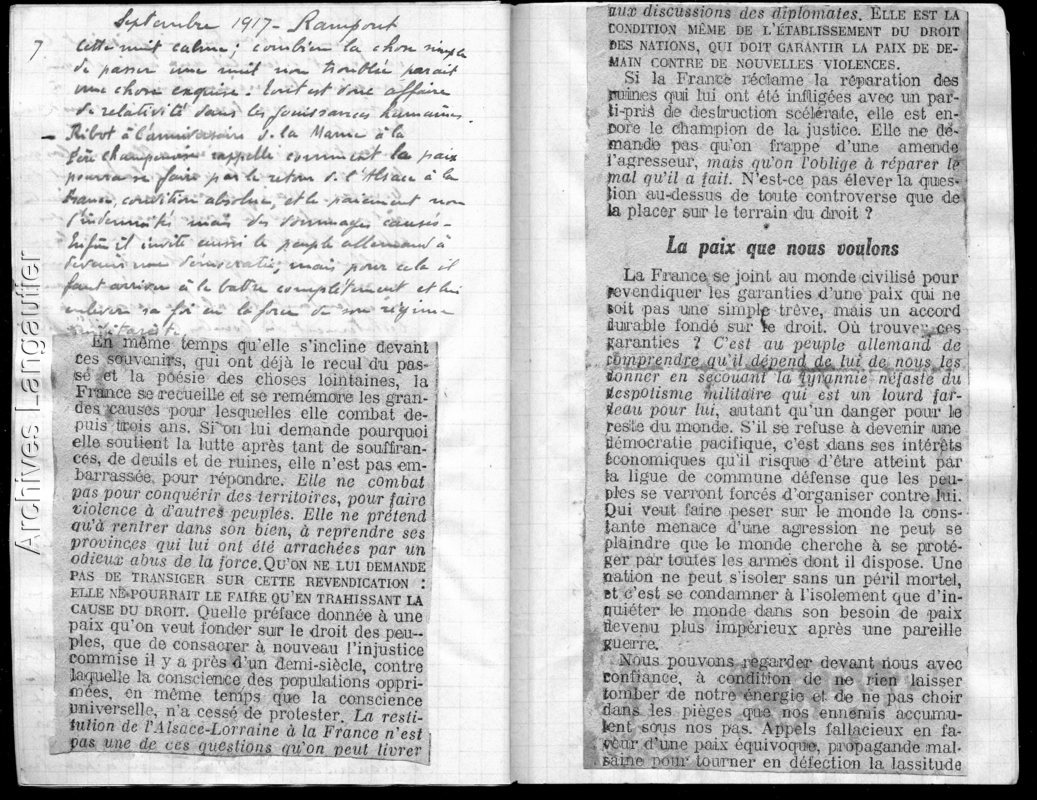 Septembre 1917 - Rampont
7 Cette nuit calme ; combien la chose simple
de passer une nuit non troublée parait
une chose exquise. tout est donc affaire
de relativité dans les jouissances humaines.
- Ribot à l'anniversaire de la Marne à la
fère champenoise rappelle comment la paix
pourra se faire par le retour de l'Alsace à la
France, condition absolue, et le paiement non
d'indemnités mais des dommages causés -
Enfin il invite aussi le peuple allemand à
devenir une démocratie, mais pour cela il
faut arriver à le battre complètement et lui
enlever sa foi en la force de son régime
militariste.
En même temps qu'elle s'incline devant
ces souvenirs, qui ont déjà le recul du pas-
sé et la poésie des choses lointaines, la
France se recueille et se remémore les gran-
des causes pour lesquelles elle combat de-
puis trois ans. Si on lui demande pourquoi
elle soutient la lutte après tant de souffran-
ces, de deuils et de ruines, elle n'est pas em-
barrassée pour répondre. Elle ne combat
pas pour conquérir des territoires, pour faire
violence à d'autres peuples. Elle ne prétend
qu'à rentrer dans son bien, à reprendre ses
provinces qui lui ont été arrachées par un
odieux abus de la force. QU'ON NE LUI DEMANDE
PAS DE TRANSIGER SUR CETTE REVENDICATION :
ELLE NE POURRAIT LE FAIRE QU'EN TRAHISSANT LA
CAUSE DU DROIT. Quelle préface donnée à une
paix qu'on veut fonder sur le droit des peu-
ples, que de consacrer à nouveau l'injustice
commise il y a près d'un demi-siècle, contre
laquelle la conscience des populations oppri-
mées, en même temps que la conscience
universelle, n'a cessé de protester. La resti-
tution de l'Alsace-Lorraine à la France n'est
pas une de ces questions qu'on peut livrer
aux discussions des diplomates. ELLE EST LA
CONDITION MÊME DE L'ÉTABLISSEMENT DU DROIT
DES NATIONS, QUI DOIT GARANTIR LA PAIX DE DE-
MAIN CONTRE DE NOUVELLES VIOLENCES.
Si la France réclame la réparation des
ruines qui lui ont été infligées avec un par-
ti-pris de destruction scélérate, elle est en-
core le champion de la justice. Elle ne de-
mande pas qu'on frappe d'une amende
l'agresseur, mais qu'on l'oblige à réparer le
mal qu'il a fait. N'est-ce pas élever la ques-
tion au-dessus de toute controverse que de
la placer sur le terrain du droit ?
La paix que nous voulons
La France se joint au monde civilisé pour
revendiquer les garanties d'une paix qui ne
soit pas une simple trêve, mais un accord
durable fondé sur le droit. Où trouver ces
garanties ? C'est au peuple allemand de
comprendre qu'il dépend de lui de nous les
donner en secouant la tyrannie néfaste du
despotisme militaire qui est un lourd far-
deau pour lui, autant qu'un danger pour le
reste du monde. S'il se refuse à devenir une
démocratie pacifique, c'est dans ses intérêts
économiques qu'il risque d'être atteint par
la ligue de commune défense que les peu-
ples se verront forcés d'organiser contre lui.
Qui veut faire peser sur le monde la cons-
tante menace d'une agression ne peut se
plaindre que le monde cherche à se proté-
ger par toutes les armes dont il dispose. Une
nation ne peut s'isoler sans un péril mortel,
et c'est se condamner à l'isolement que d'in-
quiéter le monde dans son besoin de paix
devenu plus impérieux après une pareille
guerre.
Nous pouvons regarder devant nous avec
confiance, à condition de ne rien laisser
tomber de notre énergie et de ne pas choir
dans les pièges que nos ennemis accumu-
lent sous nos pas. Appels fallacieux en fa-
veur d'une paix équivoque, propagande mal-
saine pour tourner en défection la lassitude
Archives Langautier